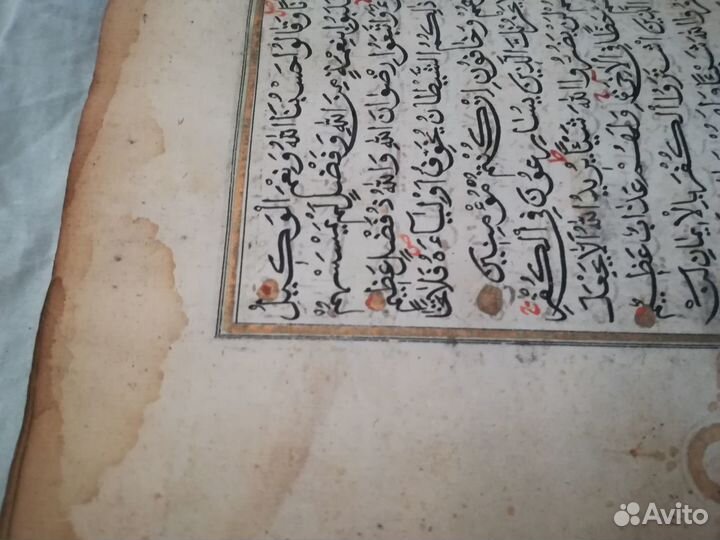 وَقَالُوا حَسْبُنَا اللَّهُ وَنِعْمَ الْوَكِيلُ
بِنِعْمَةٍ مِنَ اللَّهِ وَفَضْلٍ لَمْ يَمْسَسْهُمْ
وَاتَّبَعُوا رِضْوَانَ اللَّهِ وَاللَّهُ ذُو فَضْلٍ عَظِيمٍ
ذَلِكُمُ الشَّيْطَانُ يُخَوِّفُ أَوْلِيَاءَهُ فَلَا تَخَا
وَخَافُونِ إِنْ كُنْتُمْ مُؤْمِنِينَ
يَحْزُنْكَ الَّذِينَ يُسَارِعُونَ فِي الْكُفْرِ
لَنْ يَضُرُّوا اللَّهَ شَيْئًا يُرِيدُ اللَّهُ أَلَّا يَجْعَلَ
حَظًّا فِي الْآخِرَةِ وَلَهُمْ عَذَابٌ عَظِيمٌ
الَّذِينَ اشْتَرَوُا الْكُفْرَ بِالْإِيمَانِ لَنْ
اللَّهَ شَيْئًا وَلَهُمْ
Avito